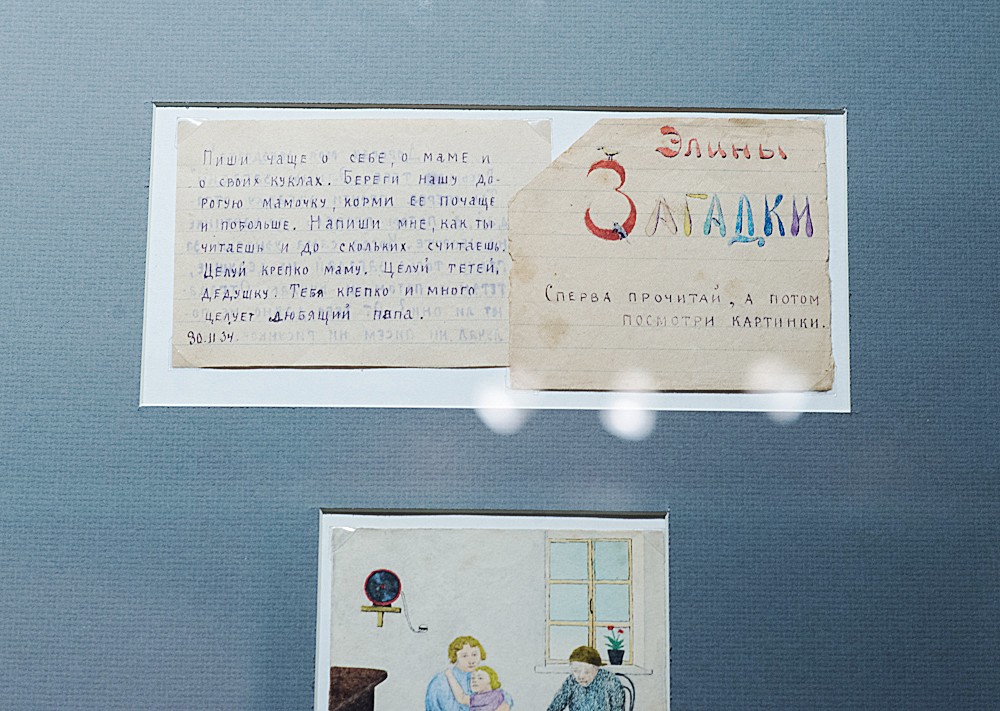 Пиши чаще о себе, о маме и
о своих куклах. Береги нашу до-
рогую мамочку, корми ее почаще
и побольше. Напиши мне, как ты
читаешь и до скольких считаешь.
Целуй крепко маму. Целуй тетей,
дедушку. Тебя крепко и много
целует любящий папа.
30.11 34.
Элины
Загадки
Сперва прочитай, а потом
посмотри картинки.